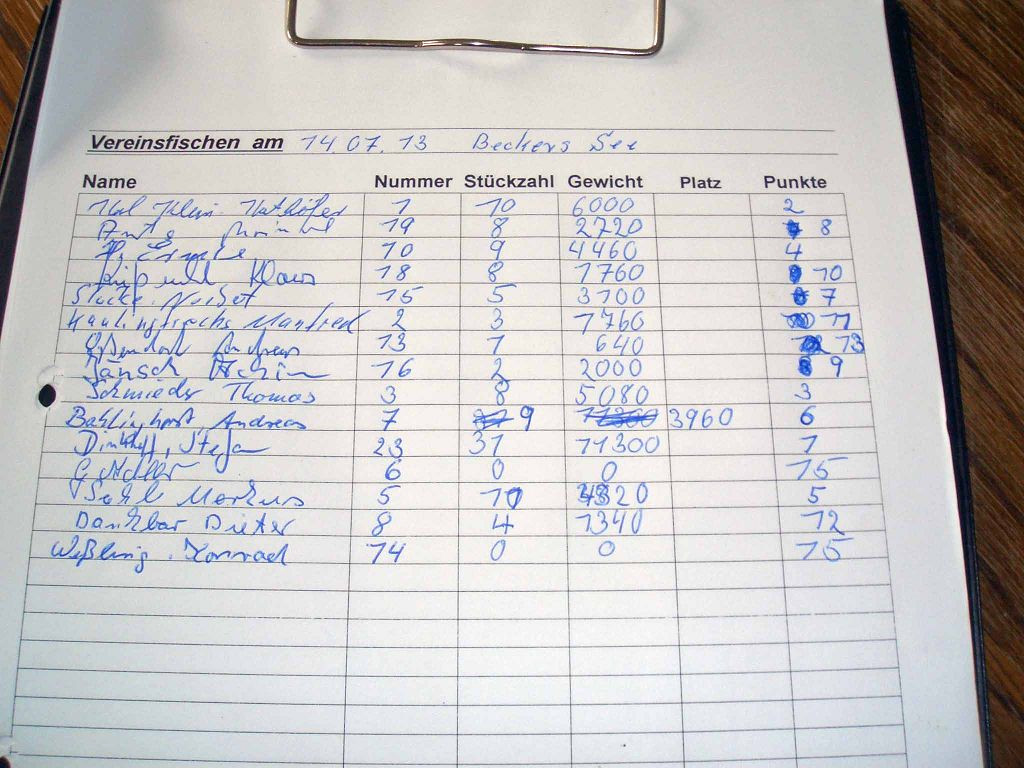 Vereinsfischen am 14.07.13 Beckers See
Name Nummer Stückzahl Gewicht Platz Punkte
1 10 6000 2
19 8 2720 8
10 9 4460 4
Klaus 18 8 1760 10
15 5 3100 7
Manfred 2 3 1760 11
Andreas 13 1 640 13
Jänsch Achim 16 2 2000 9
Schmieder Thomas 3 8 5080 3
Andreas 7 9 11300 3960 6
Stefan 23 31 11300 1
6 0 0 15
Markus 5 5
Dankbar Dieter 8 4 1340 12
Weßling Konrad 14 0 0 15